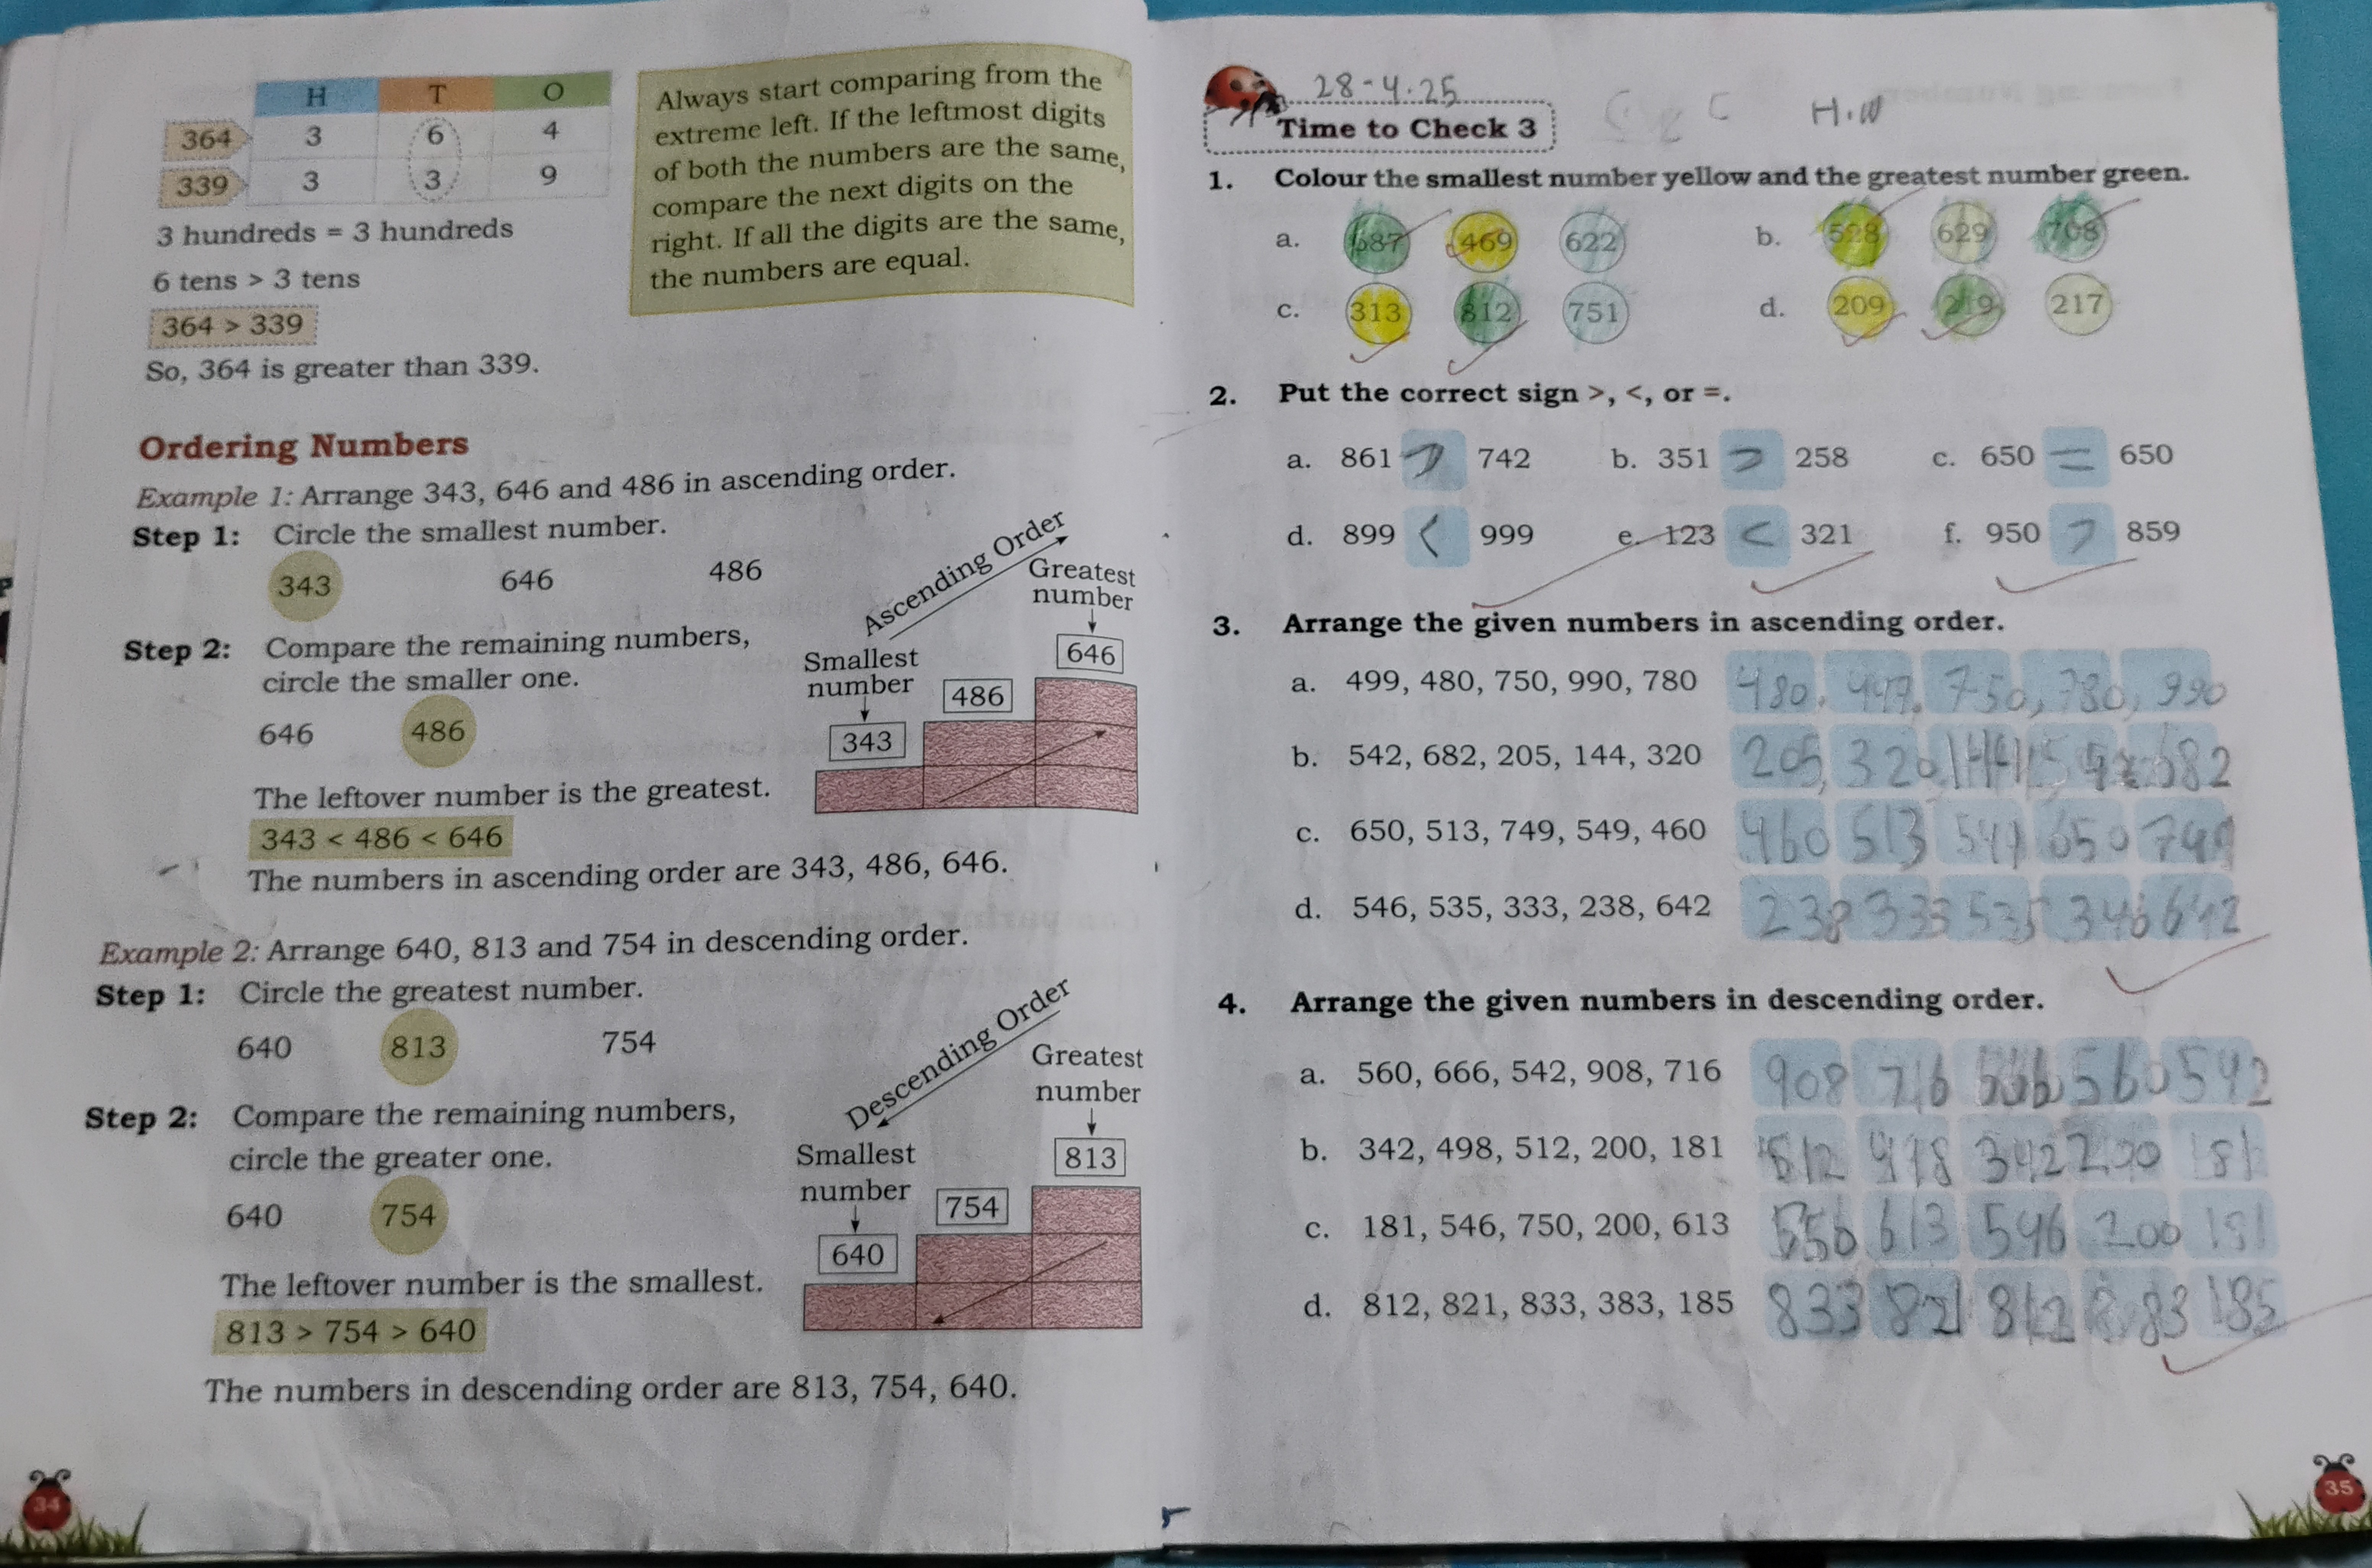 H T O
364 3 6 4
339 3 3 9
3 hundreds = 3 hundreds
6 tens > 3 tens
364 > 339
So, 364 is greater than 339.
Always start comparing from the
extreme left. If the leftmost digits
of both the numbers are the same,
compare the next digits on the
right. If all the digits are the same,
the numbers are equal.
Ordering Numbers
Example 1: Arrange 343, 646 and 486 in ascending order.
Step 1: Circle the smallest number.
343 646 486
Step 2: Compare the remaining numbers,
circle the smaller one.
646 486
The leftover number is the greatest.
343 < 486 < 646
The numbers in ascending order are 343, 486, 646.
Ascending Order
Greatest
number
646
Smallest
number
486
343
Example 2: Arrange 640, 813 and 754 in descending order.
Step 1: Circle the greatest number.
640 813 754
Step 2: Compare the remaining numbers,
circle the greater one.
640 754
The leftover number is the smallest.
813 > 754 > 640
The numbers in descending order are 813, 754, 640.
Descending Order
Greatest
number
813
Smallest
number
754
640
34
28-4.25
H.W
Time to Check 3
1. Colour the smallest number yellow and the greatest number green.
a. 687 469 622 b. 528 629 708
c. 313 812 751 d. 209 219 217
2. Put the correct sign >, <, or =.
a. 861 > 742 b. 351 > 258 c. 650 = 650
d. 899 < 999 e. 123 < 321 f. 950 > 859
3. Arrange the given numbers in ascending order.
a. 499, 480, 750, 990, 780 480, 750, 780, 990
b. 542, 682, 205, 144, 320 205, 320 682
c. 650, 513, 749, 549, 460 460 513 549 650 749
d. 546, 535, 333, 238, 642 238 333 535 346 642
4. Arrange the given numbers in descending order.
a. 560, 666, 542, 908, 716 908 716 560 542
b. 342, 498, 512, 200, 181 512 498 342 200 181
c. 181, 546, 750, 200, 613 613 546 200 181
d. 812, 821, 833, 383, 185 833 821 812 185
35